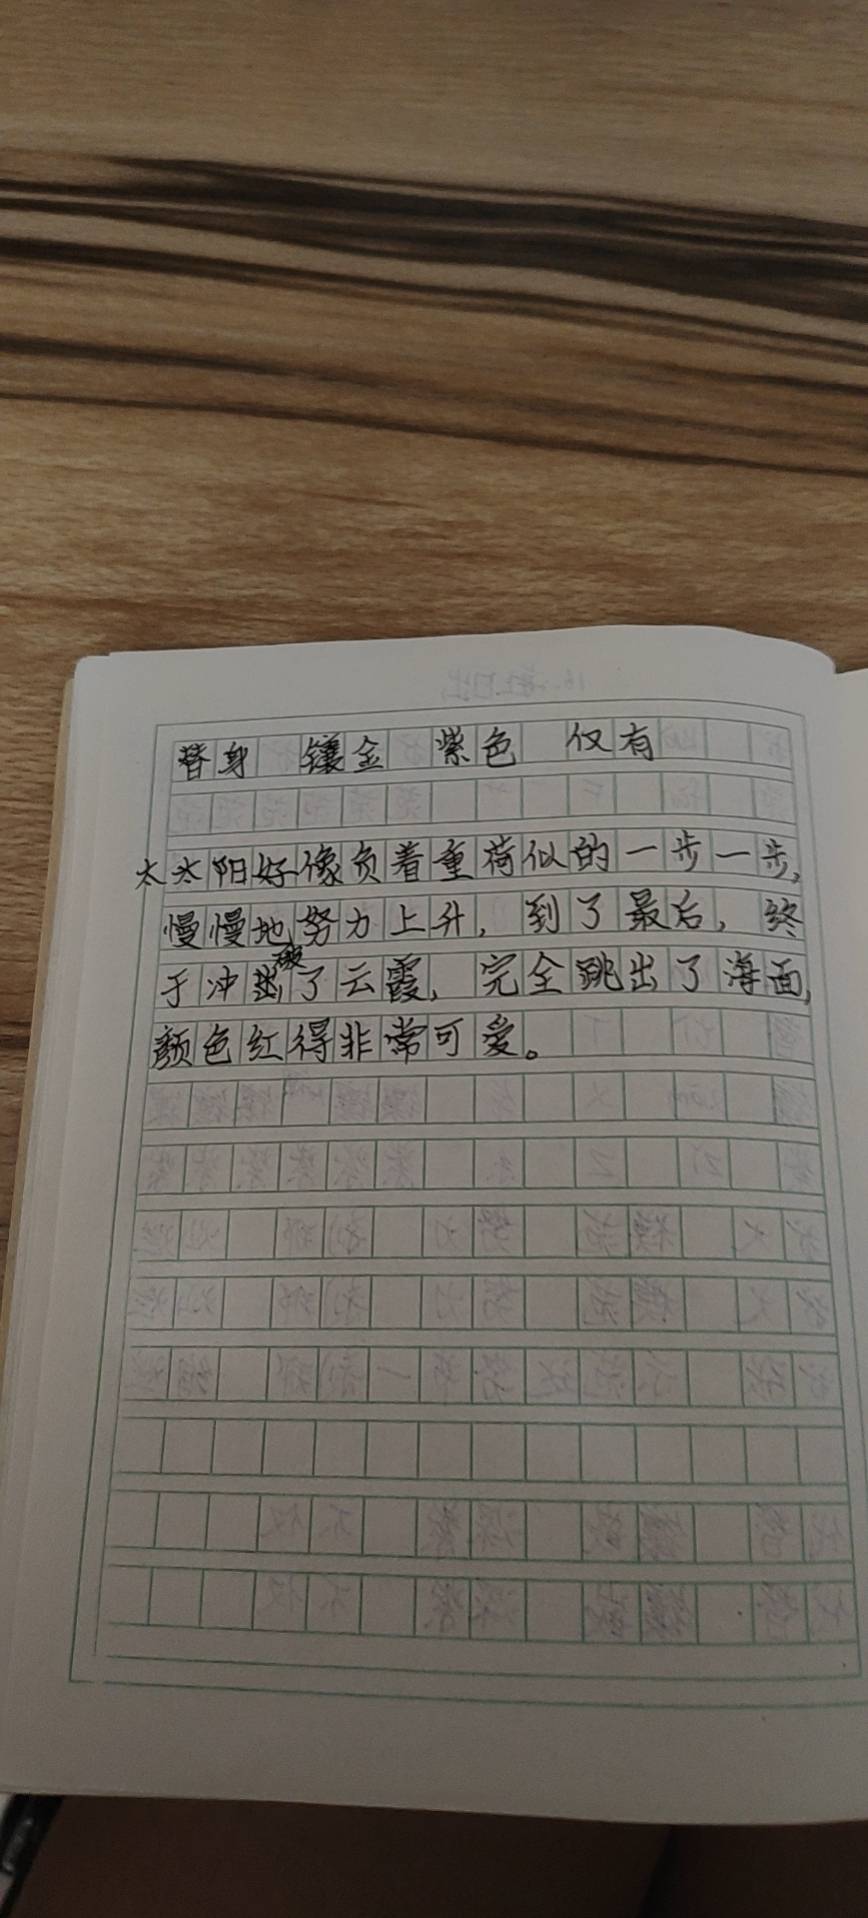 替身 镶金 紫色 仅有
太太阳好像负着重荷似的一步一步，
慢慢地努力上升，到了最后，终
于冲破了云霞，完全跳出了海面，
颜色红得非常可爱。